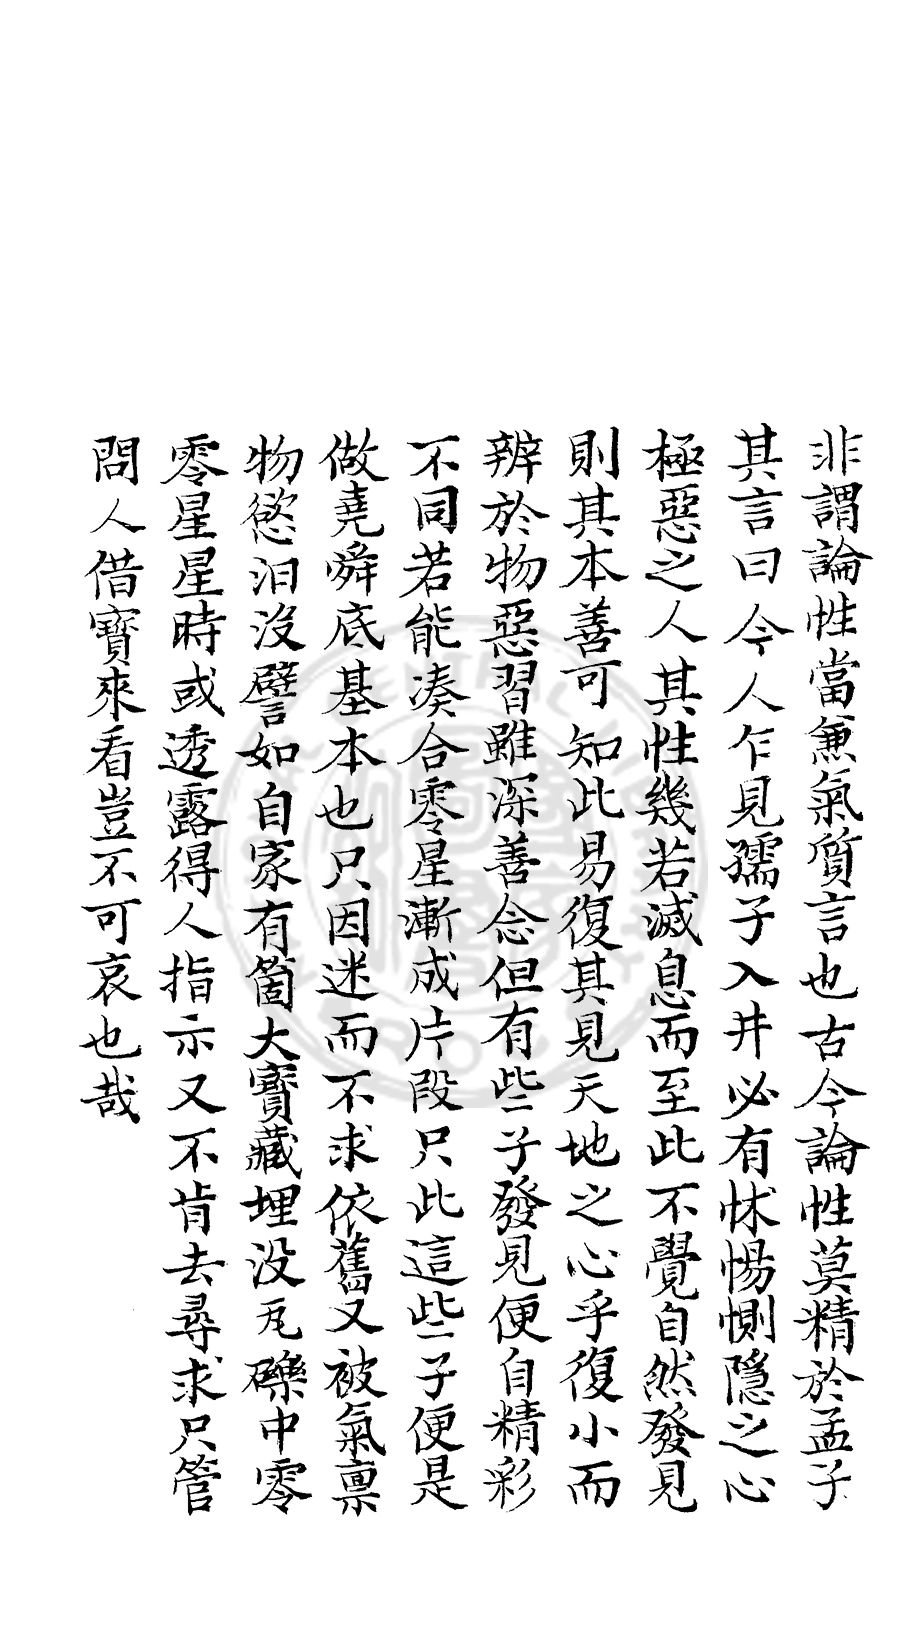 非謂論性當兼氣質言也古今論性莫精於孟子
其言曰今人乍見孺子入井必有怵惕惻隱之心
極惡之人其性幾若滅息而至此不覺自然發見
則其本善可知此易復其見天地之心乎復小而
辨於物惡習雖深善念但有些子發見便自精彩
不同若能凑合零星漸成片段只此這些子便是
做堯舜底基本也只因迷而不求依舊又被氣禀
物慾汩沒譬如自家有箇大寶藏埋没瓦礫中零
零星星時或透露得人指示又不肯去尋求只管
問人借寶來看豈不可哀也哉